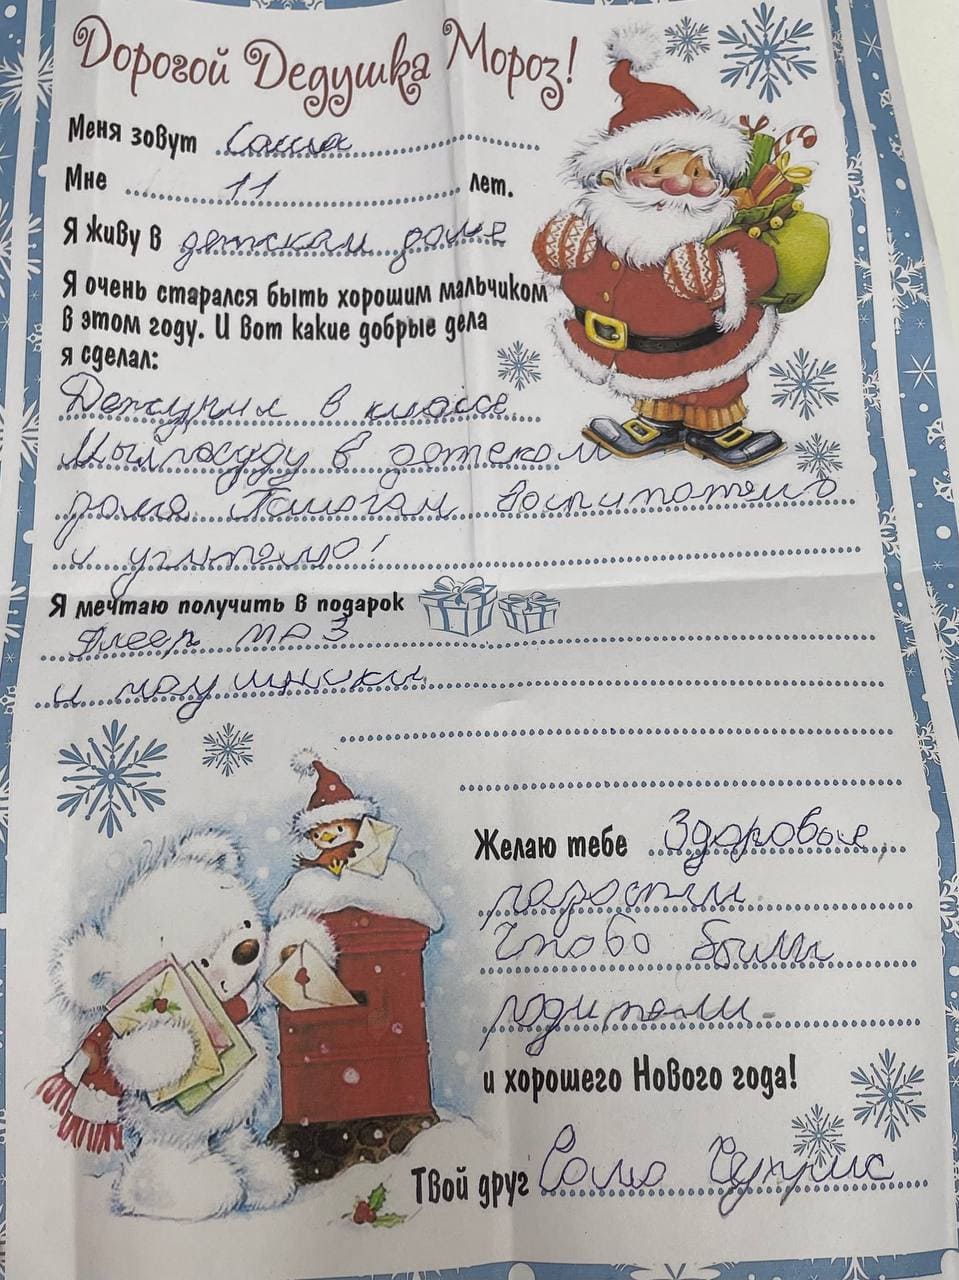 Дорогой Дедушка Мороз!
Меня зовут Саша
Мне 11 лет.
Я живу в детскам доме
Я очень старался быть хорошим мальчиком
в этом году. И вот какие добрые дела
я сделал:
Дежурил в классе
Мыл посуду в детском
доме. Помогал воспитотелю
и учителю!
Я мечтаю получить в подарок
Плеер МРЗ
и наушники
Желаю тебе Здоровье,
радости
Чтобо были
родители.
и хорошего Нового года!
Твой друг Саша